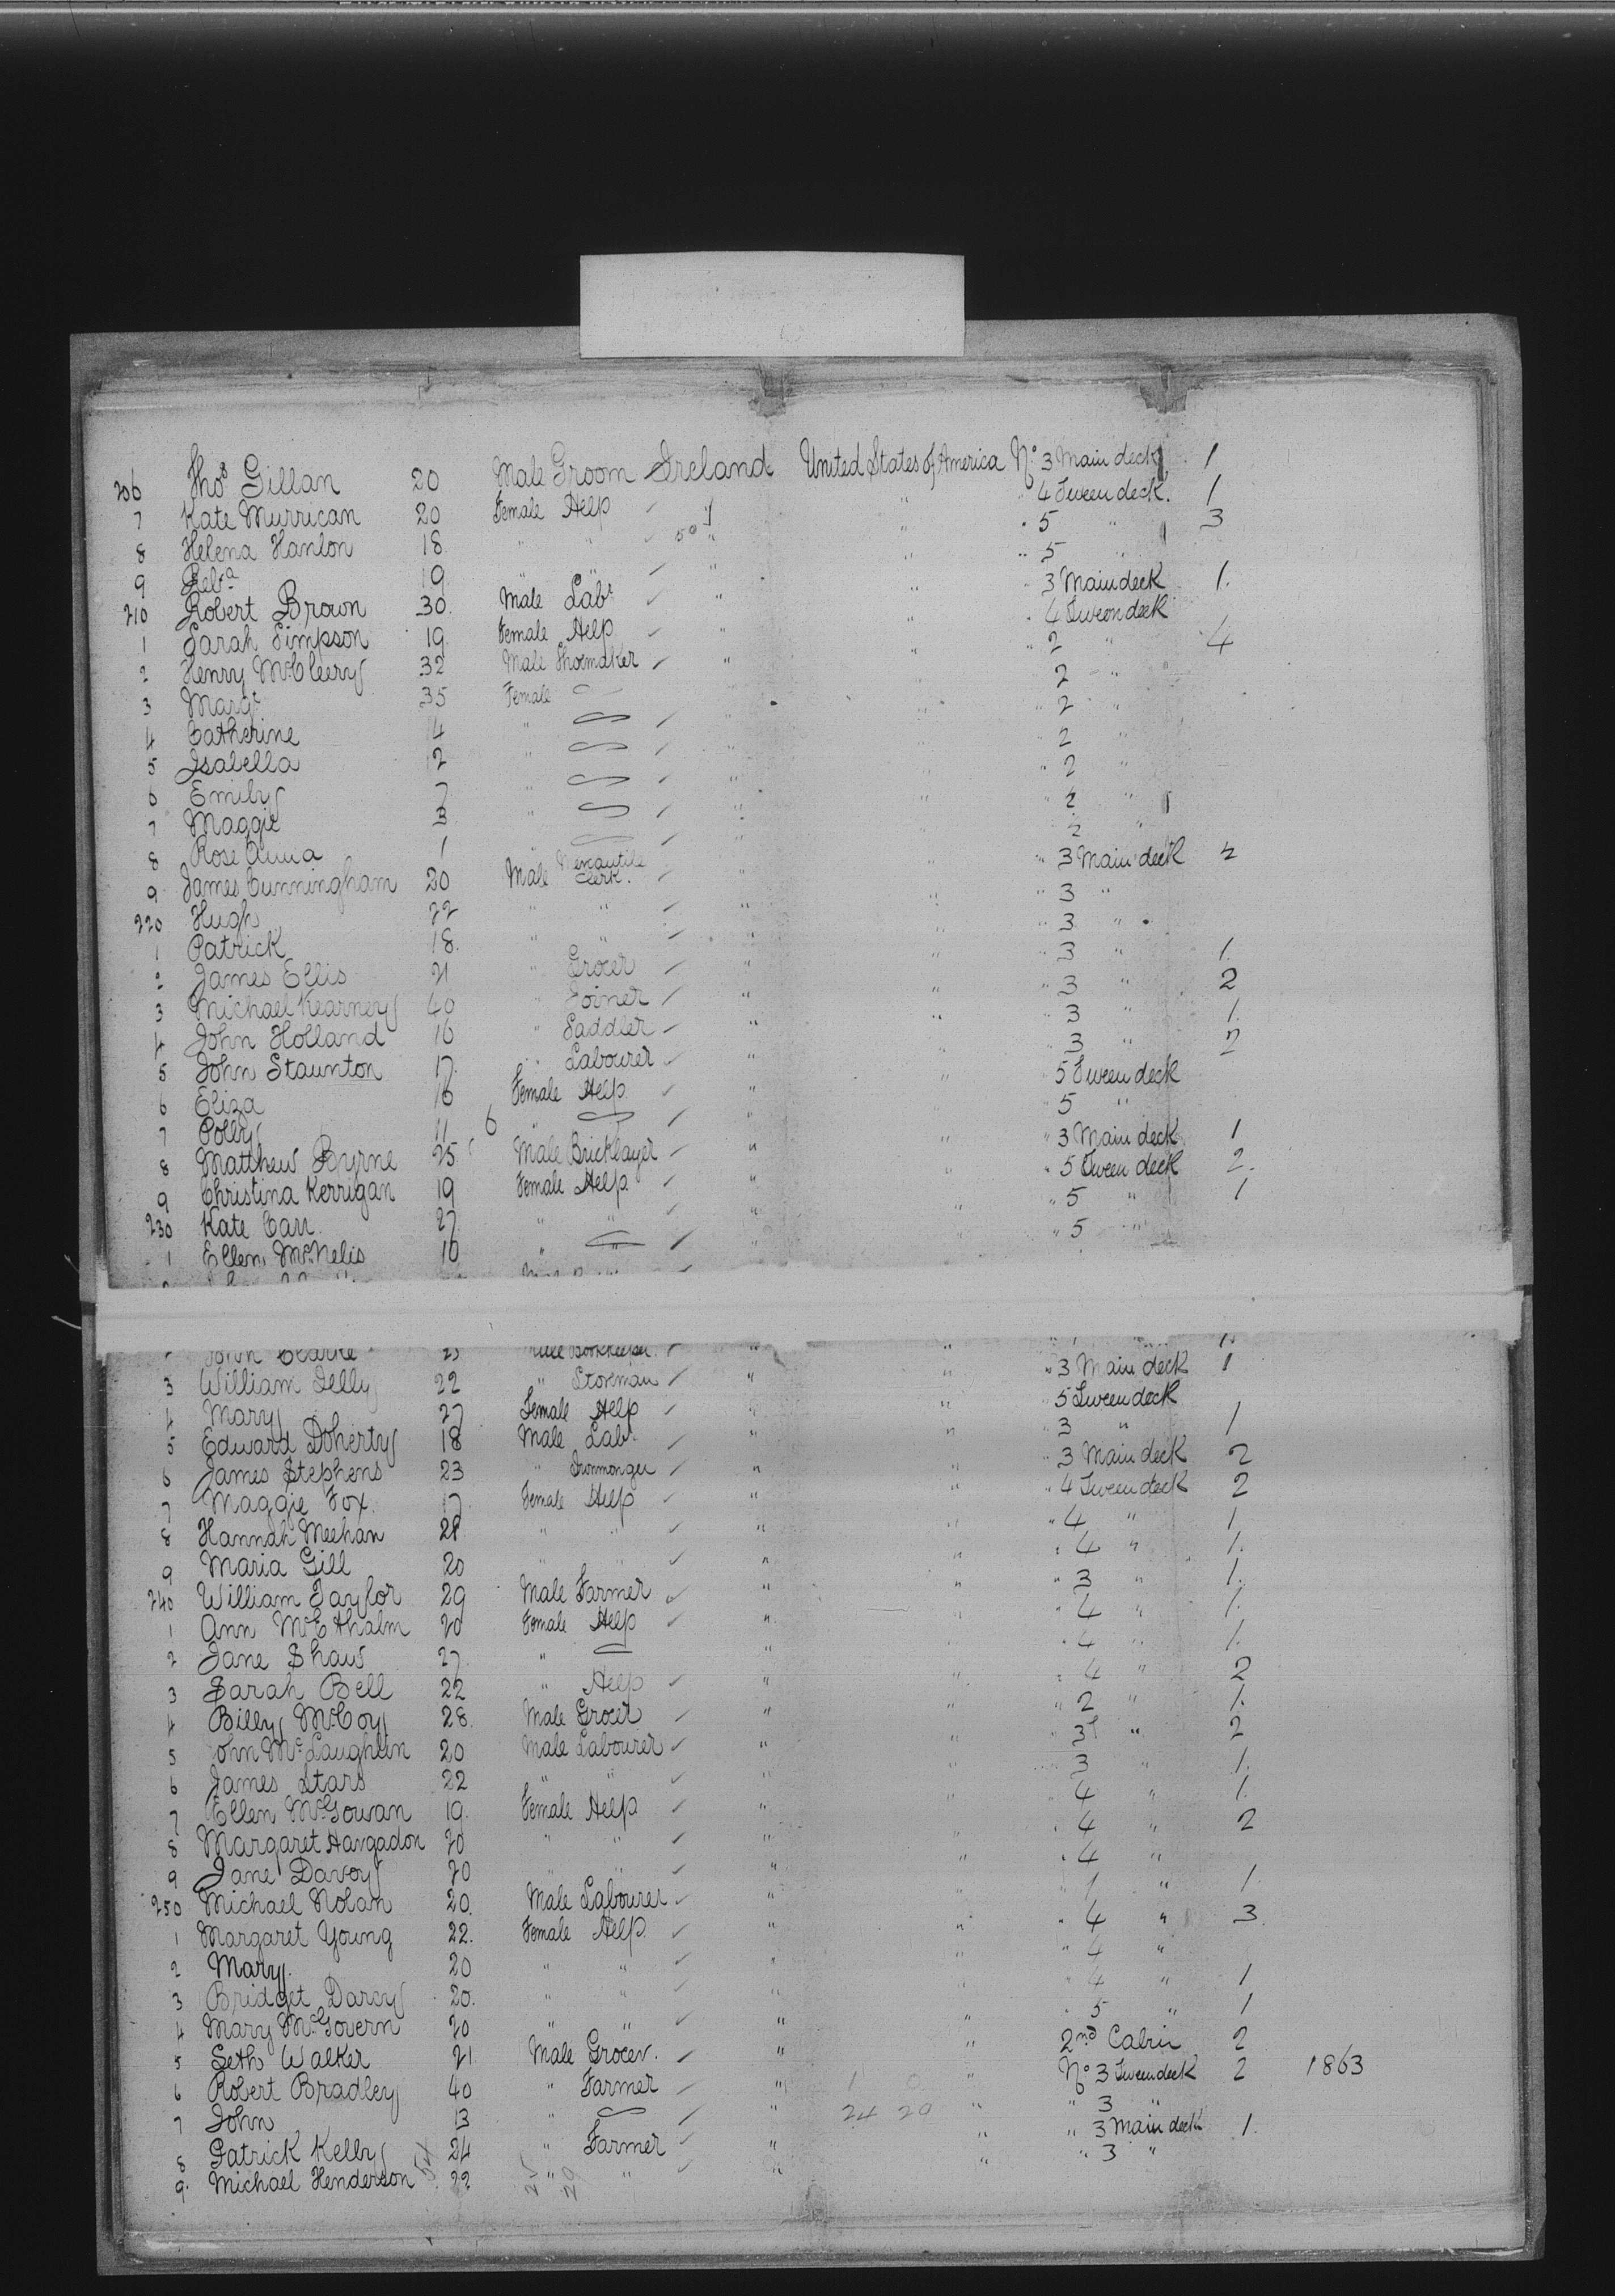 206 Thos Gillan 20 Male Groom Ireland United States of America No 3 Main deck 1
7 Kate Murrican 20 Female Help " " 4 Tween deck. 1
8 Helena Hanlon 18 " " " " 5 " 3
9 Reba 19 " " " " 5 "
210 Robert Brown 30 Male Labr " " 3 Main deck 1
1 Sarah Simpson 19 Female Help " " 4 Tween deck
2 Henry McCleery 32 Male Shoemaker " " 2 " 4
3 Margt 35 Female " " 2 "
4 Catherine 4 " " " 2 "
5 Isabella 12 " " " 2 "
6 Emily 7 " " " 2 "
7 Maggie 3 " " " 2 "
8 Rose Anna 1 " " " 2 "
9 James Cunningham 20 Male Mercantile Clerk. " " 3 Main deck 4
220 Hugh 22 " " " " 3 "
1 Patrick 18 " " " " 3 "
2 James Ellis 21 " Grocer " " 3 " 1
3 Michael Kearney 40 " Joiner " " 3 " 2
4 John Holland 16 " Saddler " " 3 " 1
5 John Staunton 17 " Labourer " " 3 " 2
6 Eliza 16 Female Help " " 5 Tween deck
7 Polly 11 6 " " " 5 "
8 Matthew Byrne 25 Male Bricklayer " " 3 Main deck 1
9 Christina Kerrigan 19 Female Help " " 5 Tween deck 2
230 Kate Carr 27 " " " " 5 " 1
1 Ellen McNelis 10 " " " " 5 "
John Clarke 25 Male Bookkeeper " "
3 William Jelly 22 " Storeman " " 3 Main deck 1
4 Mary 27 Female Help " " 5 Tween deck
5 Edward Doherty 18 Male Labr " " 3 " 1
6 James Stephens 23 " Ironmonger " " 3 Main deck 2
7 Maggie Fox 17 Female Help " " 4 Tween deck 2
8 Hannah Meehan 21 " " " " 4 " 1
9 Maria Gill 20 " " " " 4 " 1
240 William Taylor 29 Male Farmer " " 3 " 1
1 Ann 20 Female Help " " 4 " 1
2 Jane Shaw 27 " " " 4 " 1
3 Sarah Bell 22 " Help " " 4 " 2
4 Billy McCoy 28 Male Grocer " " 2 " 1
5 John McLaughlin 20 Male Labourer " " 3 " 2
6 James Stars 22 " " " " 3 " 1
7 Ellen McGowan 19 Female Help " " 4 " 1
8 Margaret Hargadon 20 " " " " 4 " 2
9 Jane Davoy 20 " " " " 4 "
250 Michael Nolan 20 Male Labourer " " 1 " 1
1 Margaret Young 22 Female Help " " 4 " 3
2 Mary 20 " " " " 4 "
3 Bridget Darcy 20 " " " " 4 " 1
4 Mary McGovern 20 " " " " 5 " 1
5 Seth Walker 21 Male Grocer. " " 2nd Cabin 2
6 Robert Bradley 40 " Farmer " " No 3 Tween deck 2 1863
7 John 13 " " 24 20 " " 3 "
8 Patrick Kelly 24 " Farmer " " " 3 Main deck 1
9 Michael Henderson 22 " " " " " 3 "